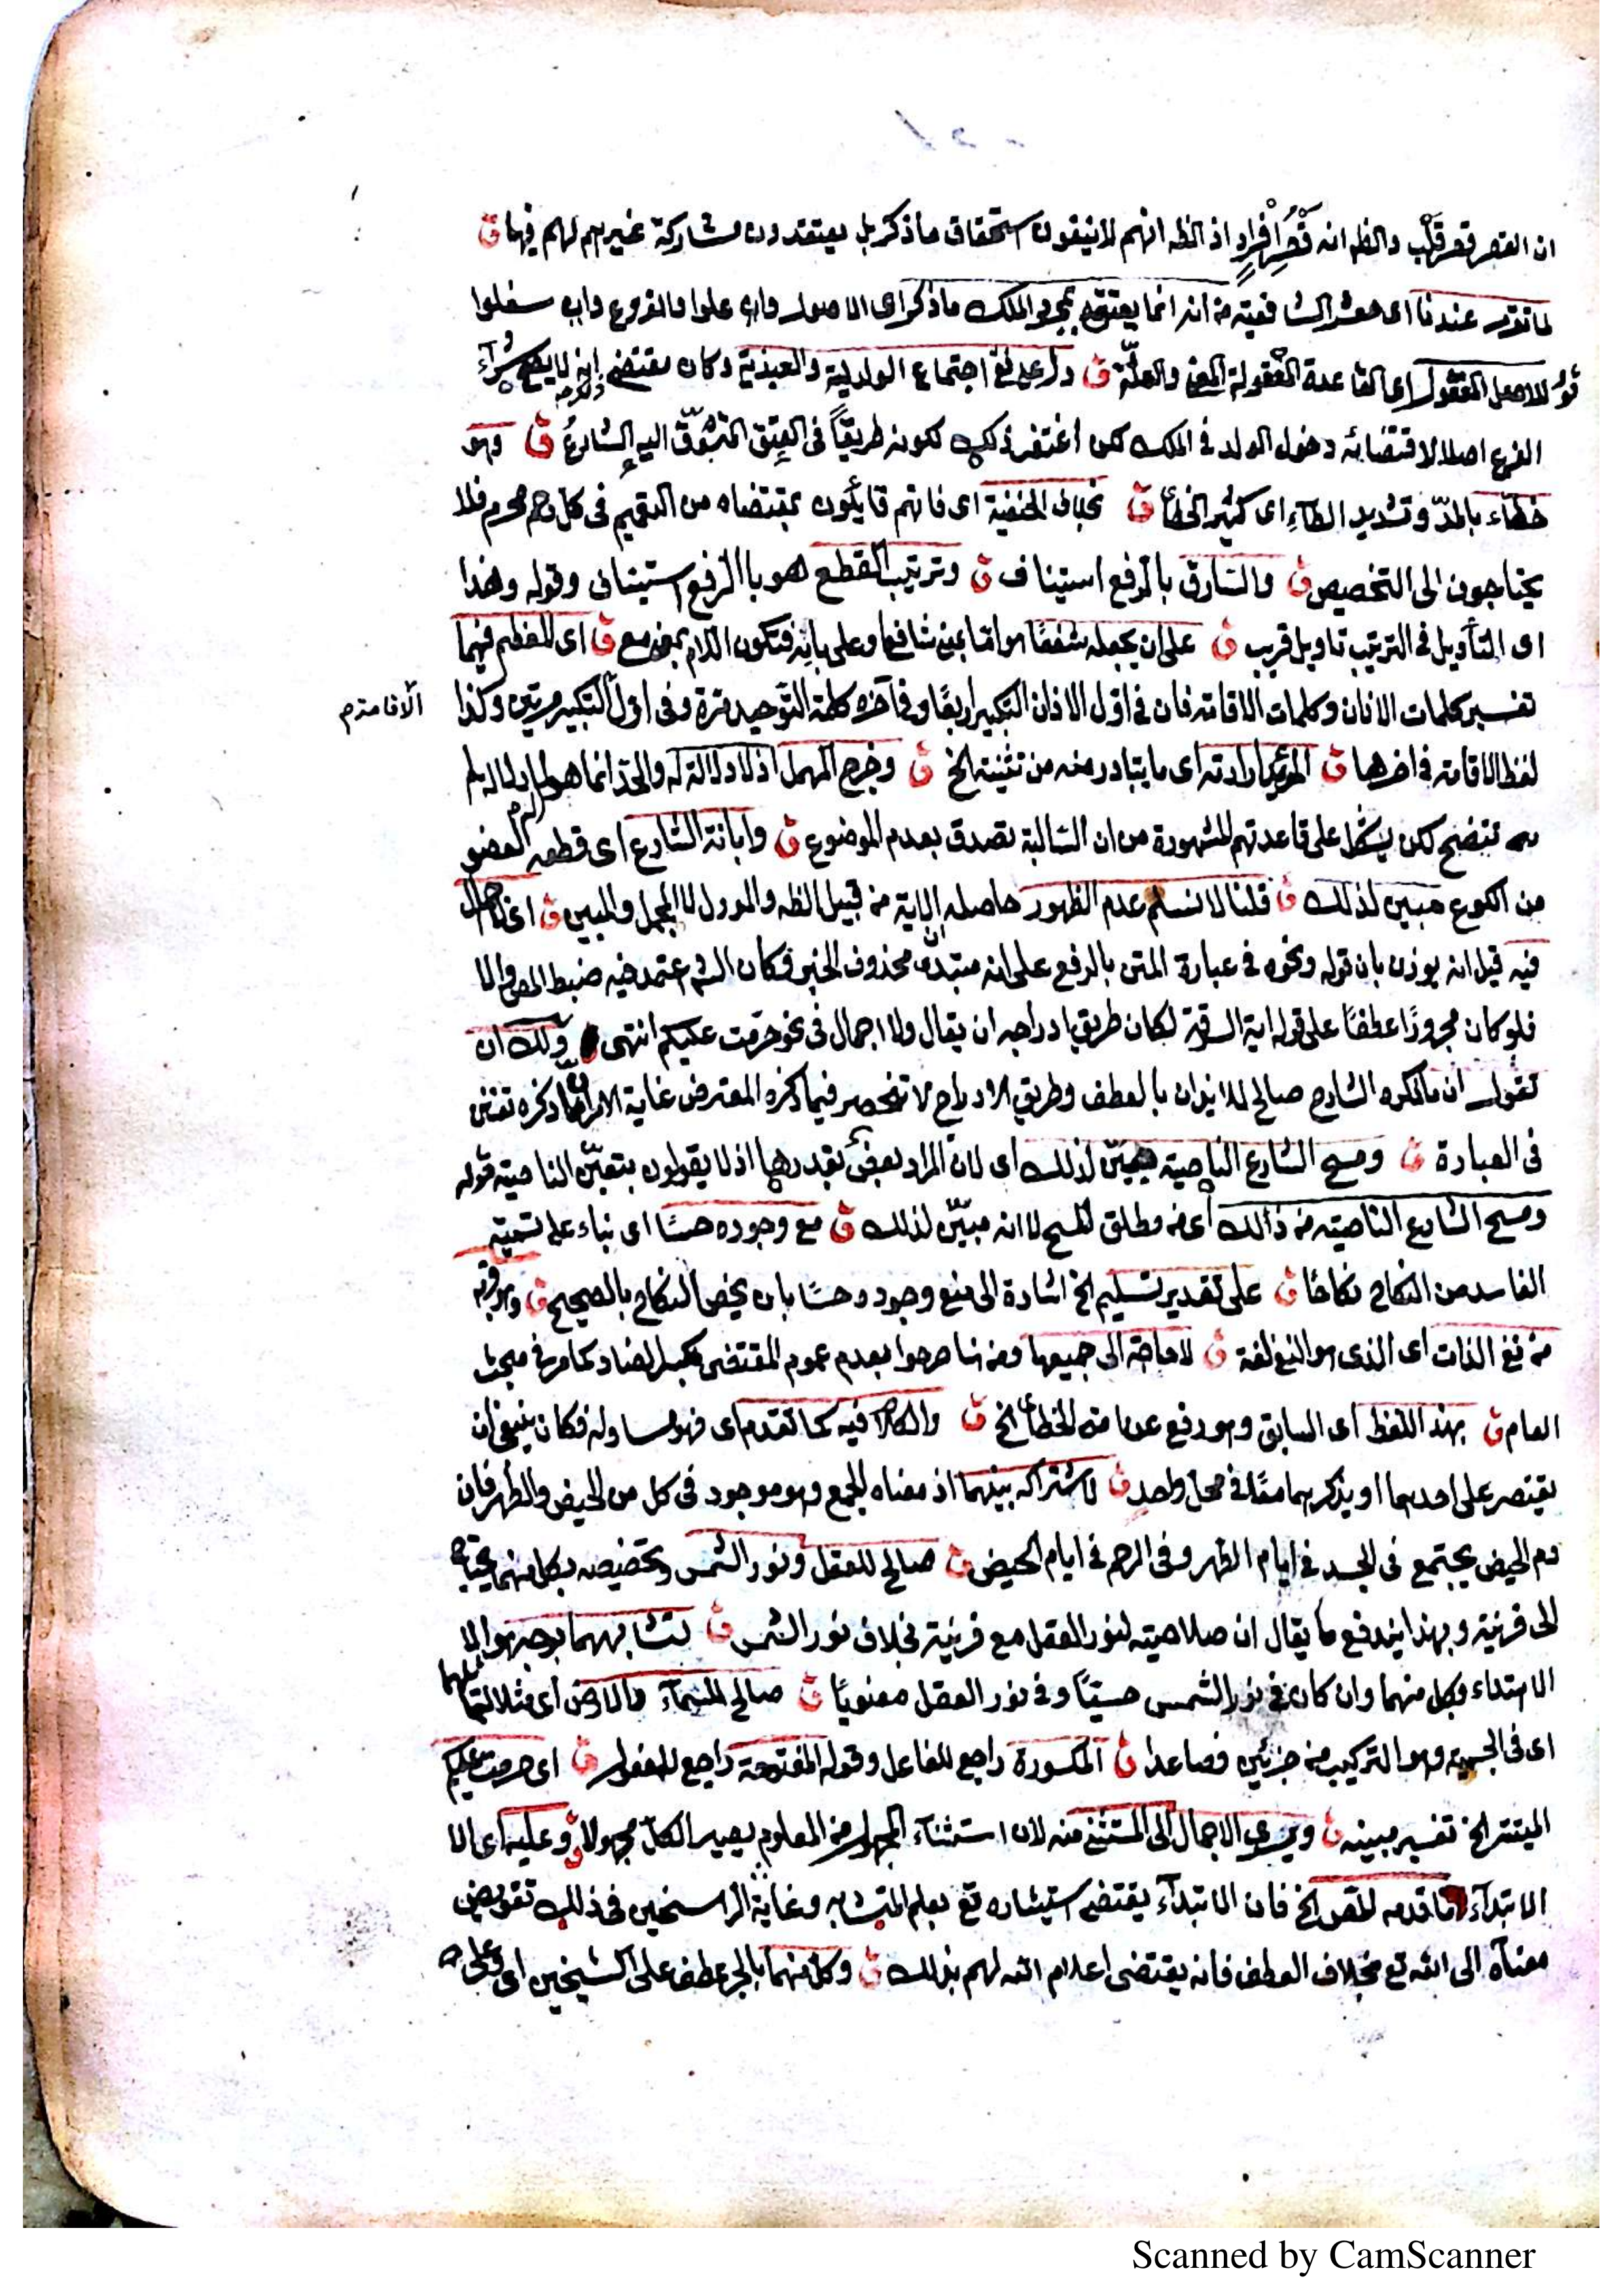 ان القصر قصر قَلْب والظه انه قَصْرُ اِفْرادٍ اذ الظه انهم لا ينفون استحقاق ما ذكر بل يعتقدون مشاركة غيرهم لهم فيها ق
لما تقرر عندنا اى معشر الشافعية من انه انما يعتق بمجرد الملك ما ذكر اى الاصول وان علوا والفروع وان سفلوا
للاصل المعقول اى القاعدة المعقولة المعنى والعلّة ق دل على نفى اجتماع الولدية والعبدية وكان مقتضى انه لا يصح شرآء
الفرع اصلا لاقتضائه دخول الولد فى الملك لكن اغتفر ذلك لكونه طريقًا فى العِتق المتشوّق اليه الشارعُ ق وهو
خطّاء بالمدّ وتشديد الطآء اى كثير الخطأ ق بخلاف الحنفية اى فانهم قايلون بمقتضاه من التعميم فى كل رحم محرم فلا
يحتاجون الى التخصيص ق والسّارق بالرفع استيناف ق وترتيب القطع هو بالرفع استينافى وقوله وهذا
اى التأويل فى الترتيب تاويل قريب ق على ان يجعله شفعًا هو اما بمعنى شافعا وعلى بابه فتكون اللام بمعنى مع ق اى المعظم فيهما
تفسير كلمات الاذان وكلمات الاقامة فان فى اوّل الاذان التكبير اربعًا وفى آخره كلمة التّوحيد مرة وفى اوّل التكبير مرتين وكذا
الاقامة م
لفظ الاقامة فى اخرها ق المؤيد ارادته اى ما يتبادر منه من تثنية الخ ق وخرج المهمل اذ لا دلالة له والحدّ انما هو لما له دلالة لم
تتضح لكن يشكل على قاعدتهم المشهورة من ان السّالبة تصدق بعدم الموضوع ق وابانة الشّارع اى قطعه العضو
من الكوع مبين لذلك ق قلنا لا نسلم عدم الظهور حاصله ان الاية من قبيل الظه والمورل لا المجمل والمبين ق اى لا اجمال
فيه قيل انه يوذن بان قوله ونحوه فى عبارة المتن بالرفع على انه مبتدأ محذوف الخبر فكان الش اعتمد فيه ضبط المص والا
فلو كان مجرورًا عطفًا على قوله اية السرقة لكان طريق ادراجه ان يقال ولا اجمال فى نحو حرمت عليكم انتهى ولك ان
تقول ان ما ذكره الشارح صالح للايذان بالعطف وطريق الادراج لا تنحصر فيما ذكره المعترض غاية الامر ان ما ذكره تفنن
فى العبارة ق ومسح الشارع الناصية مبيّن لذلك اى لان المراد بعض بقدرها اذ لا يقولون بتعيّن الناصية قوله
ومسح الشارع الناصية من ذالك اى من مطلق المسح لا انه مبيّن لذلك ق مع وجوده حسًّا اى بناء على تسمية
الفاسد من النكاح نكاحًا ق على تقدير تسليم الخ اشارة الى منع وجوده حسًّا بان يخص النكاح بالصحيح ق وهو قرب
من نفى الذات اى الذى هو النفى لغة ق لا حاجة الى جميعها ومن هنا صرحوا بعدم عموم المقتضى بكسر الضاد كما مر فى مبحث
العام ق بهذا اللفظ اى السابق وهو رفع عن امتى الخطأ الخ ق والكلام فيه كما تقدم اى فهو مساو له فكان ينبغى ان
يقتصر على احدهما او يذكرهما معًا فى محل واحدٍ ق لاشتراكه بينهما اذ معناه الجمع وهو موجود فى كل من الحيض والطّهر فان
دم الحيض يجتمع فى الجسد فى ايام الطهر وفى الرحم فى ايام الحيض ق صالح للعقل ونور الشمس وتخصيصه بكل منهما يحتاج
الى قرينة وبهذا يندفع ما يقال ان صلاحيته لنور العقل مع قرينة بخلاف نور الشمس ق لتشابههما بوجه هو الا
الاهتداء بكل منهما وان كان فى نور الشمس حسيًّا وفى نور العقل معنويًّا ق صالح للسّمآء والارض اى مثلا لتماثلهما
اى فى الجسمية وهو التركيب من جزئين فصاعدا ق المكسورة راجع للفاعل وقوله المفتوحة راجع للمفعول ق اى حرمت عليكم
الميتة الخ تفسير مبينه ق ويسرى الاجمال الى المستثنى منه لان استثنآء المجهول من المعلوم يصير الكلّ مجهولا ق وعليه اى الا
الابتدآء ما قدمه المص الخ فان الابتدآء يقتضى استيثاره تع بعلم المتشابه وغاية الراسخين فى ذلك تفويض
معناه الى الله تع بخلاف العطف فانه يقتضى اعلام الله لهم بذلك ق وكل منهما بالجر عطف على الشيخين اى وعلى
Scanned by CamScanner